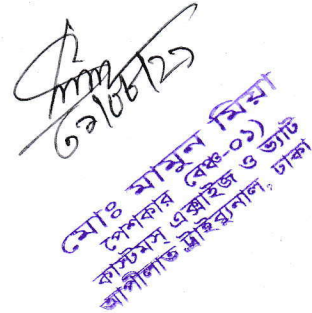 ৩১/০৮/২১
মোঃ মামুন মিয়া
পেশকার (বেঞ্চ-০১)
কাস্টমস্ এক্সাইজ ও ভ্যাট
আপীলাত ট্রাইব্যুনাল, ঢাকা